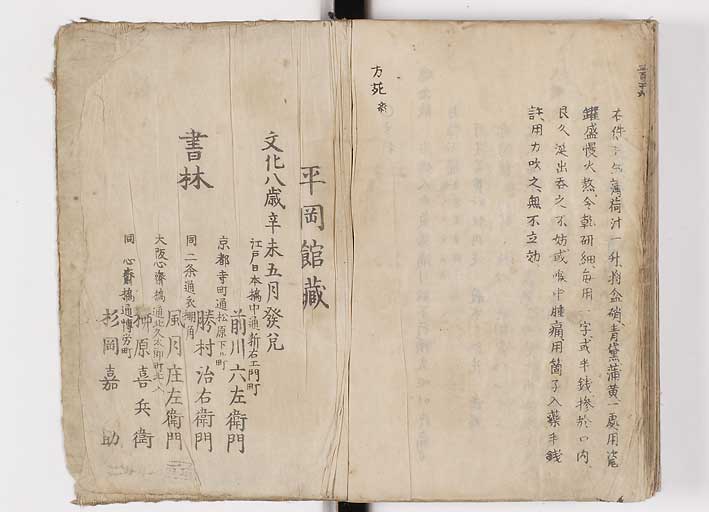 右件生薄荷汁一升將盆硝青黛蒲黄一處用瓷
罐盛慢火熬令乾研細每用一字或半錢摻於口内
良久涎出吞之不妨或喉中腫痛用筒子入藥半錢
許用力吹之無不立効
方苑
平岡館藏
文化八歳辛未五月發兌
江戸日本橋中通新右エ門町
前川六左衛門
京都寺町通松原下ル町
勝村治右衛門
同二条通衣棚角
風月庄左衛門
大阪心齋橋通北久太郎町北入
柳原喜兵衛
同心齋橋通博労町
杉岡嘉助
書林